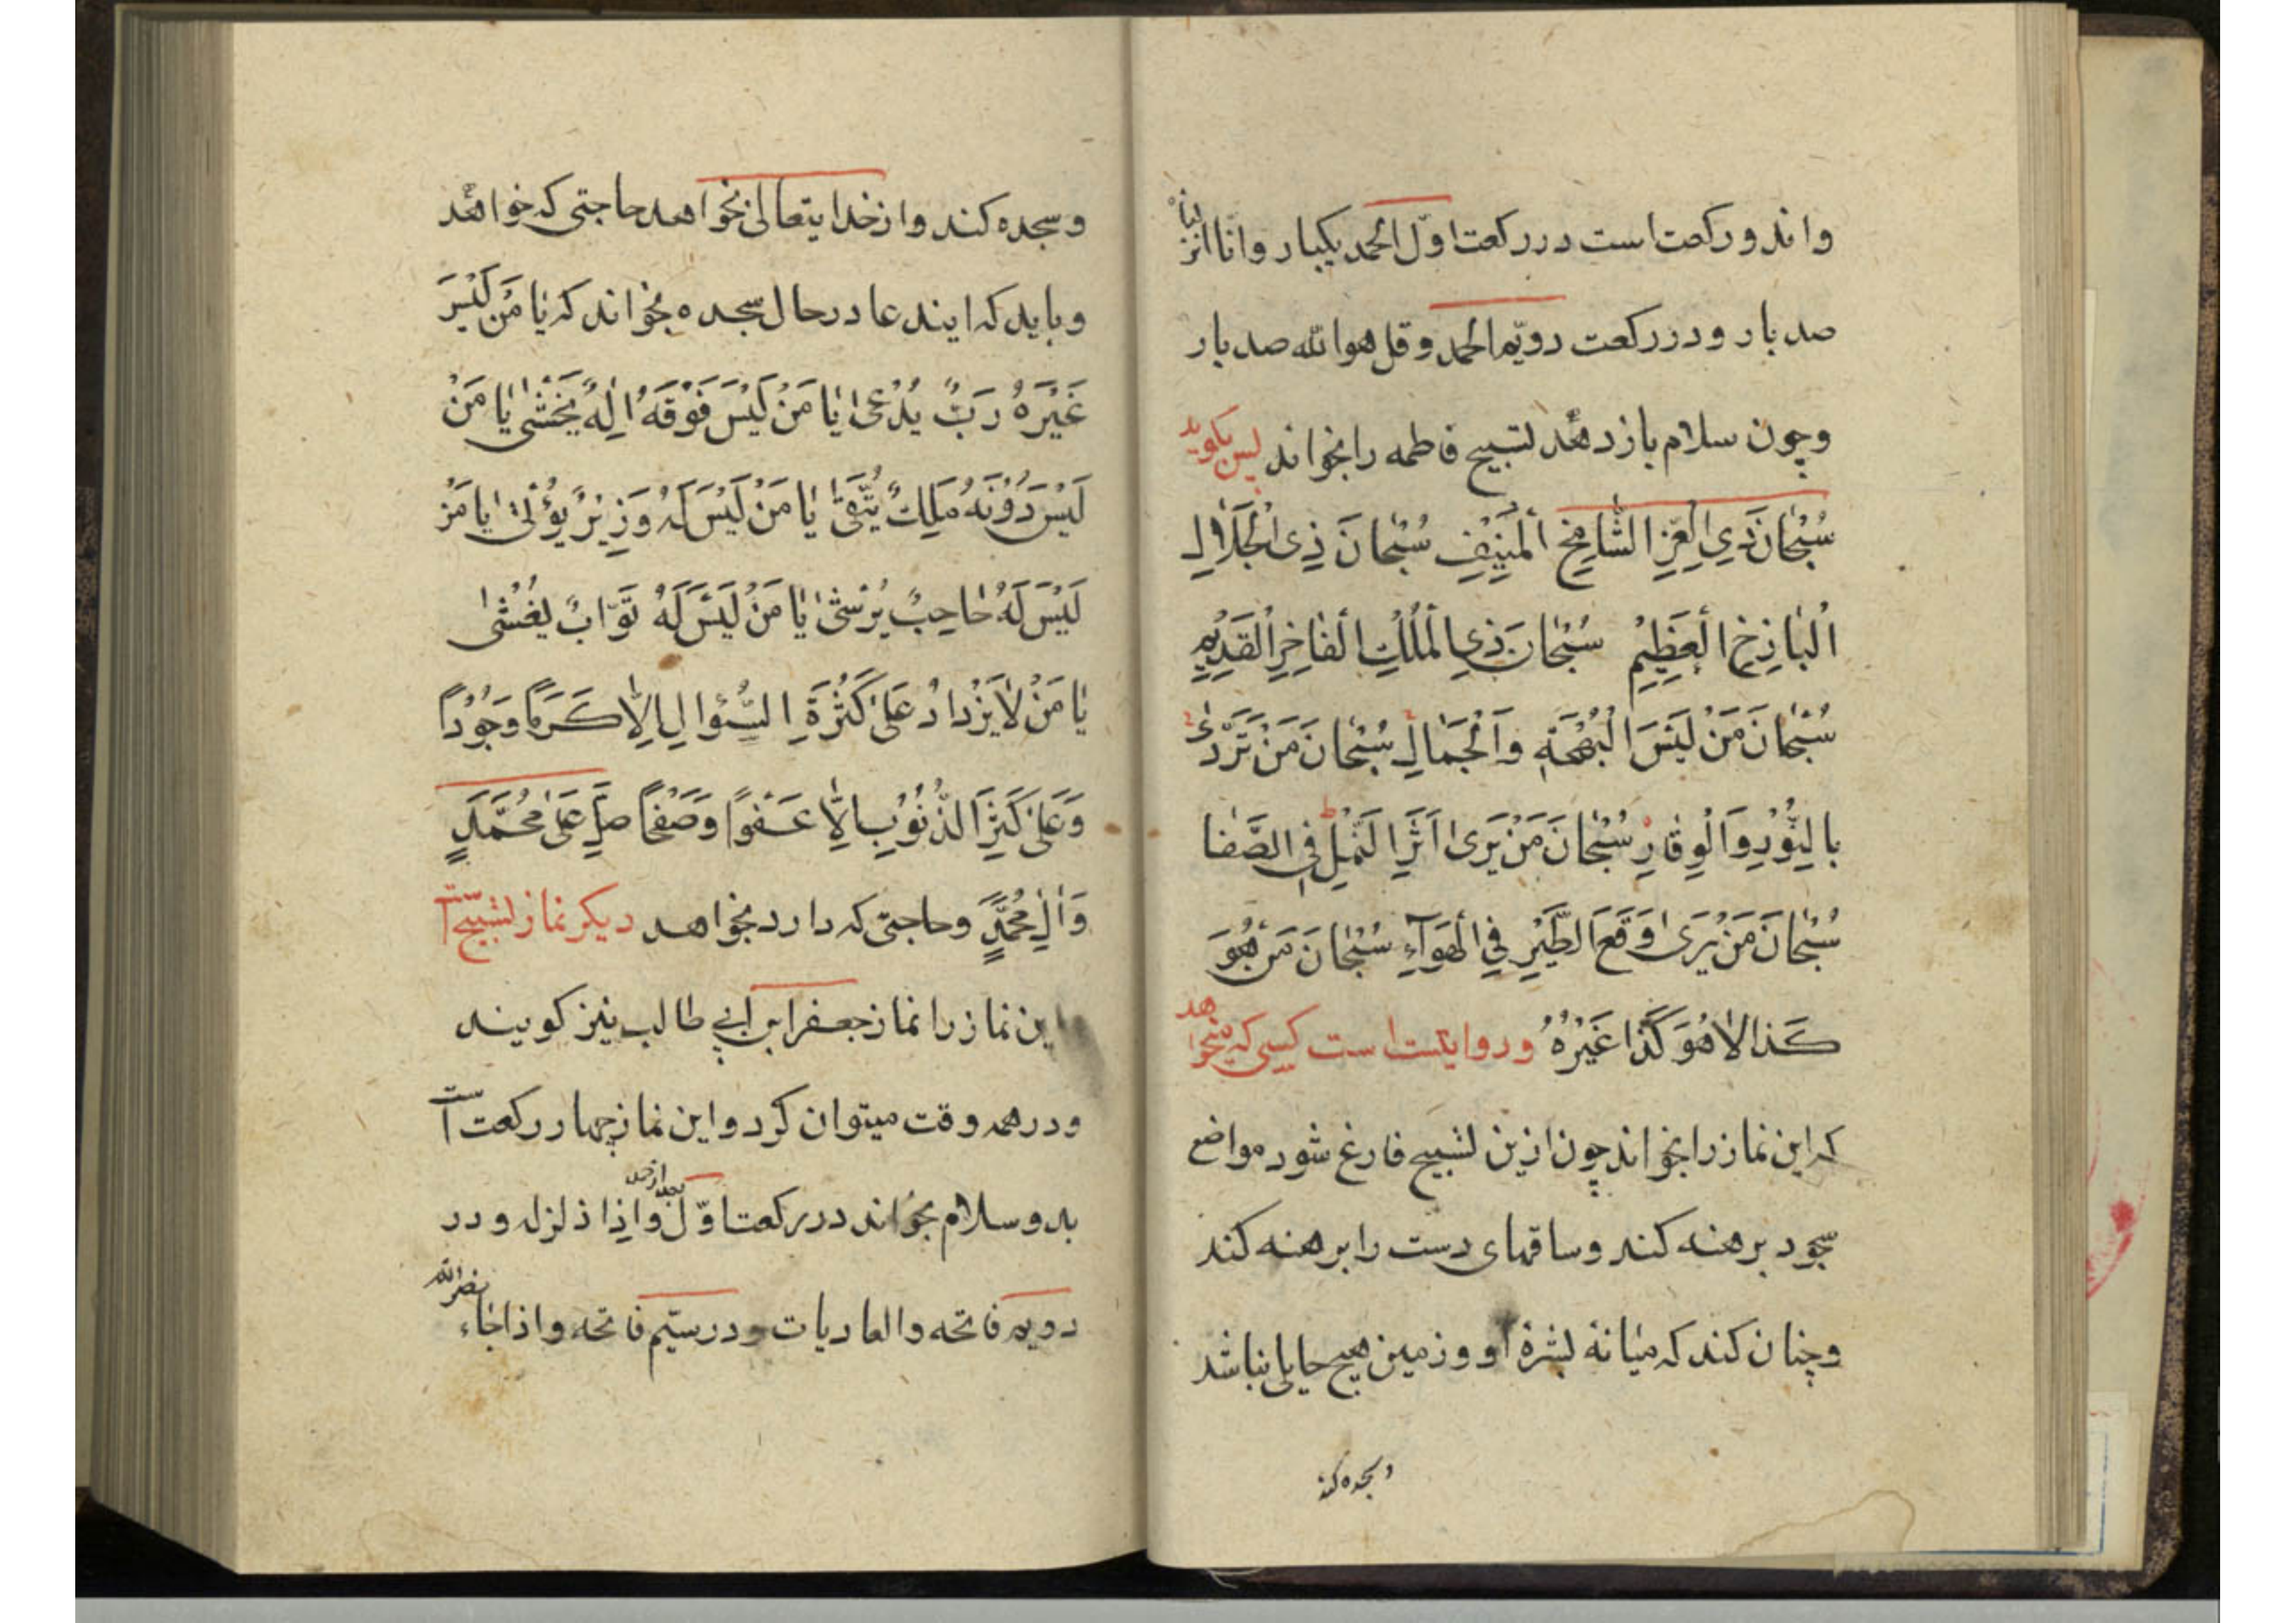 واندو رکعت است در رکعت اوّل الحمد یکبار وانّا انزلناه
صد بار و در رکعت دویّم الحمد و قل هو الله صد بار
وچون سلام باز دهد تسبیح فاطمه را بخواند پس بکوید
سُبْحَانَ ذِي الْعِزِّ الشَّامِخِ الْمُنِيفِ سُبْحَانَ ذِي الْجَلَالِ
الْبَاذِخِ الْعَظِيْمِ سُبْحَانَ ذِي الْمُلْكِ الْفَاخِرِ الْقَدِيْمِ
سُبْحَانَ مَنْ لَبِسَ الْبَهْجَةِ وَالْجَمَالِ سُبْحَانَ مَنْ تَرَدّٰى
بِالنُّوْرِ وَالْوِقَارِ سُبْحَانَ مَنْ يَرَى اَثَرَ النَّمْلِ فِي الصَّفَا
سُبْحَانَ مَنْ يَرَى وَقْعَ الطَّيْرِ فِي الْهَوَآءِ سُبْحَانَ مَنْ هُوَ
كَذَا لَا هُوَ كَذَا غَيْرُهُ وروایتست است کسی که بخواهد
که این نماز را بخواند چون ازین تسبیح فارغ شود مواضع
سجود برهنه کند وساقهای دست را برهنه کند
وچنان کند که میانهٔ بشرهٔ او و زمین هیچ حایلی نباشد
وسجده کند
وسجده کند واز خدایتعالی بخواهد حاجتی که خواهد
وباید که ایندعا در حال سجده بخواند که یَا مَنْ لَيْسَ
غَيْرَهُ رَبٌّ يُدْعٰى يَا مَنْ لَيْسَ فَوْقَهُ اِلٰهٌ يَخْشٰى يَا مَنْ
لَيْسَ دُوْنَهُ مَلِكٌ يُتَّقٰى يَا مَنْ لَيْسَ لَهُ وَزِيْرٌ يُؤْتٰى يَا مَنْ
لَيْسَ لَهُ حَاجِبٌ يُرْشٰى يَا مَنْ لَيْسَ لَهُ تَوَّابٌ يَغْشٰى
يَا مَنْ لَا يَزْدَادُ عَلٰى كَثْرَةِ السُّؤَالِ اِلَّا كَرَمًا وَجُوْدًا
وَعَلٰى كَثْرَةِ الذُّنُوْبِ اِلَّا عَفْوًا وَصَفْحًا صَلِّ عَلٰى مُحَمَّدٍ
وَاٰلِ مُحَمَّدٍ وحاجتی که دارد بخواهد دیکر نماز تسبیح است
این نماز را نماز جعفر ابن ابی طالب نیز کویند
ودر همه وقت میتوان کرد و این نماز چهار رکعت است
بدو سلام بخواند در رکعت اوّل بعد از حمد واذا زلزله و در
دویم فاتحه والعادیات و در سیّم فاتحه واذا جاء نصر الله